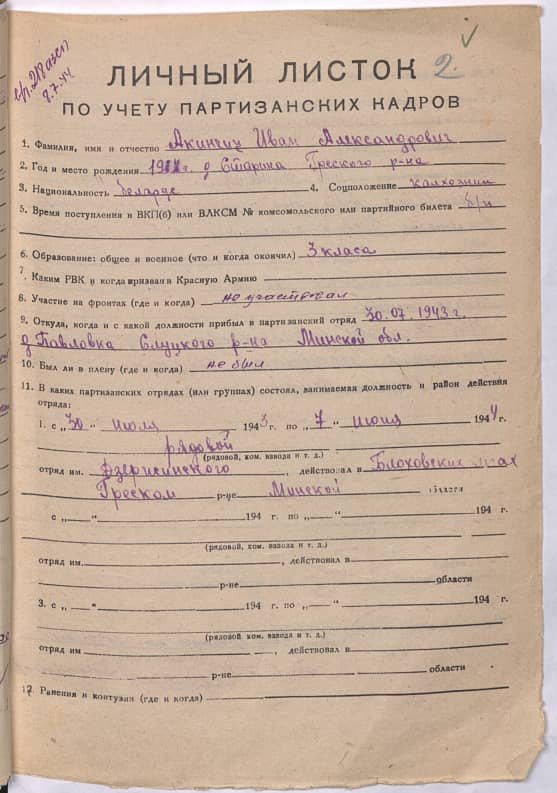 9.7.44
2.
ЛИЧНЫЙ ЛИСТОК
ПО УЧЕТУ ПАРТИЗАНСКИХ КАДРОВ
1. Фамилия, имя и отчество Акинчиц Иван Александрович
2. Год и место рождения д Старина Греского р-на
3. Национальность беларус 4. Соцположение колхозник
5. Время поступления в ВКП(б) или ВЛКСМ № комсомольского или партийного билета б/п
6. Образование: общее и военное (что и когда окончил) 3 класа
7. Каким РВК и когда призван в Красную Армию
8. Участие на фронтах (где и когда) не участвовал
9. Откуда, когда и с какой должности прибыл в партизанский отряд 30.07.1943 г.
д Павловка Слуцкого р-на Минской обл.
10. Был ли в плену (где и когда) не был
11. В каких партизанских отрядах (или группах) состоял, занимаемая должность и район действия
отряда:
1. с „30" июля 1943 г. по „7" июля 1944 г.
рядовой
(рядовой, ком. взвода и т. д.)
отряд им. Дзержинского, действовал в
Греском р-не Минской области
с „ " 194 г. по „ " 194 г.
(рядовой, ком. взвода и т. д.)
отряд им. , действовал в
р-не области
3. с „ " 194 г. по „ " 194 г.
(рядовой, ком. взвода и т. д.)
отряд им , действовал в
р-не области
12. Ранения и контузии (где и когда)